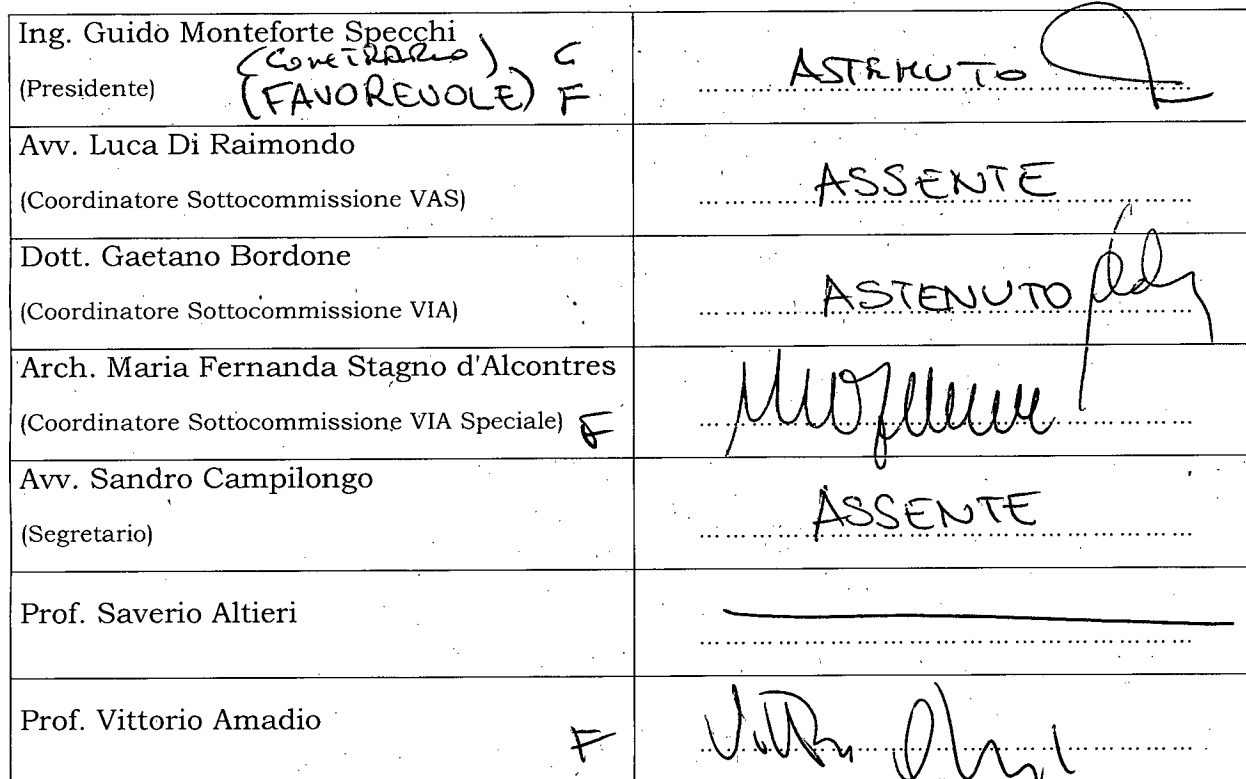 Ing. Guido Monteforte Specchi
(CONTRARIO) C
(Presidente) (FAVOREVOLE) F ASTENUTO
Avv. Luca Di Raimondo
(Coordinatore Sottocommissione VAS) ASSENTE
Dott. Gaetano Bordone
(Coordinatore Sottocommissione VIA) ASTENUTO
Arch. Maria Fernanda Stagno d'Alcontres
(Coordinatore Sottocommissione VIA Speciale) F
Avv. Sandro Campilongo
(Segretario) ASSENTE
Prof. Saverio Altieri
Prof. Vittorio Amadio F